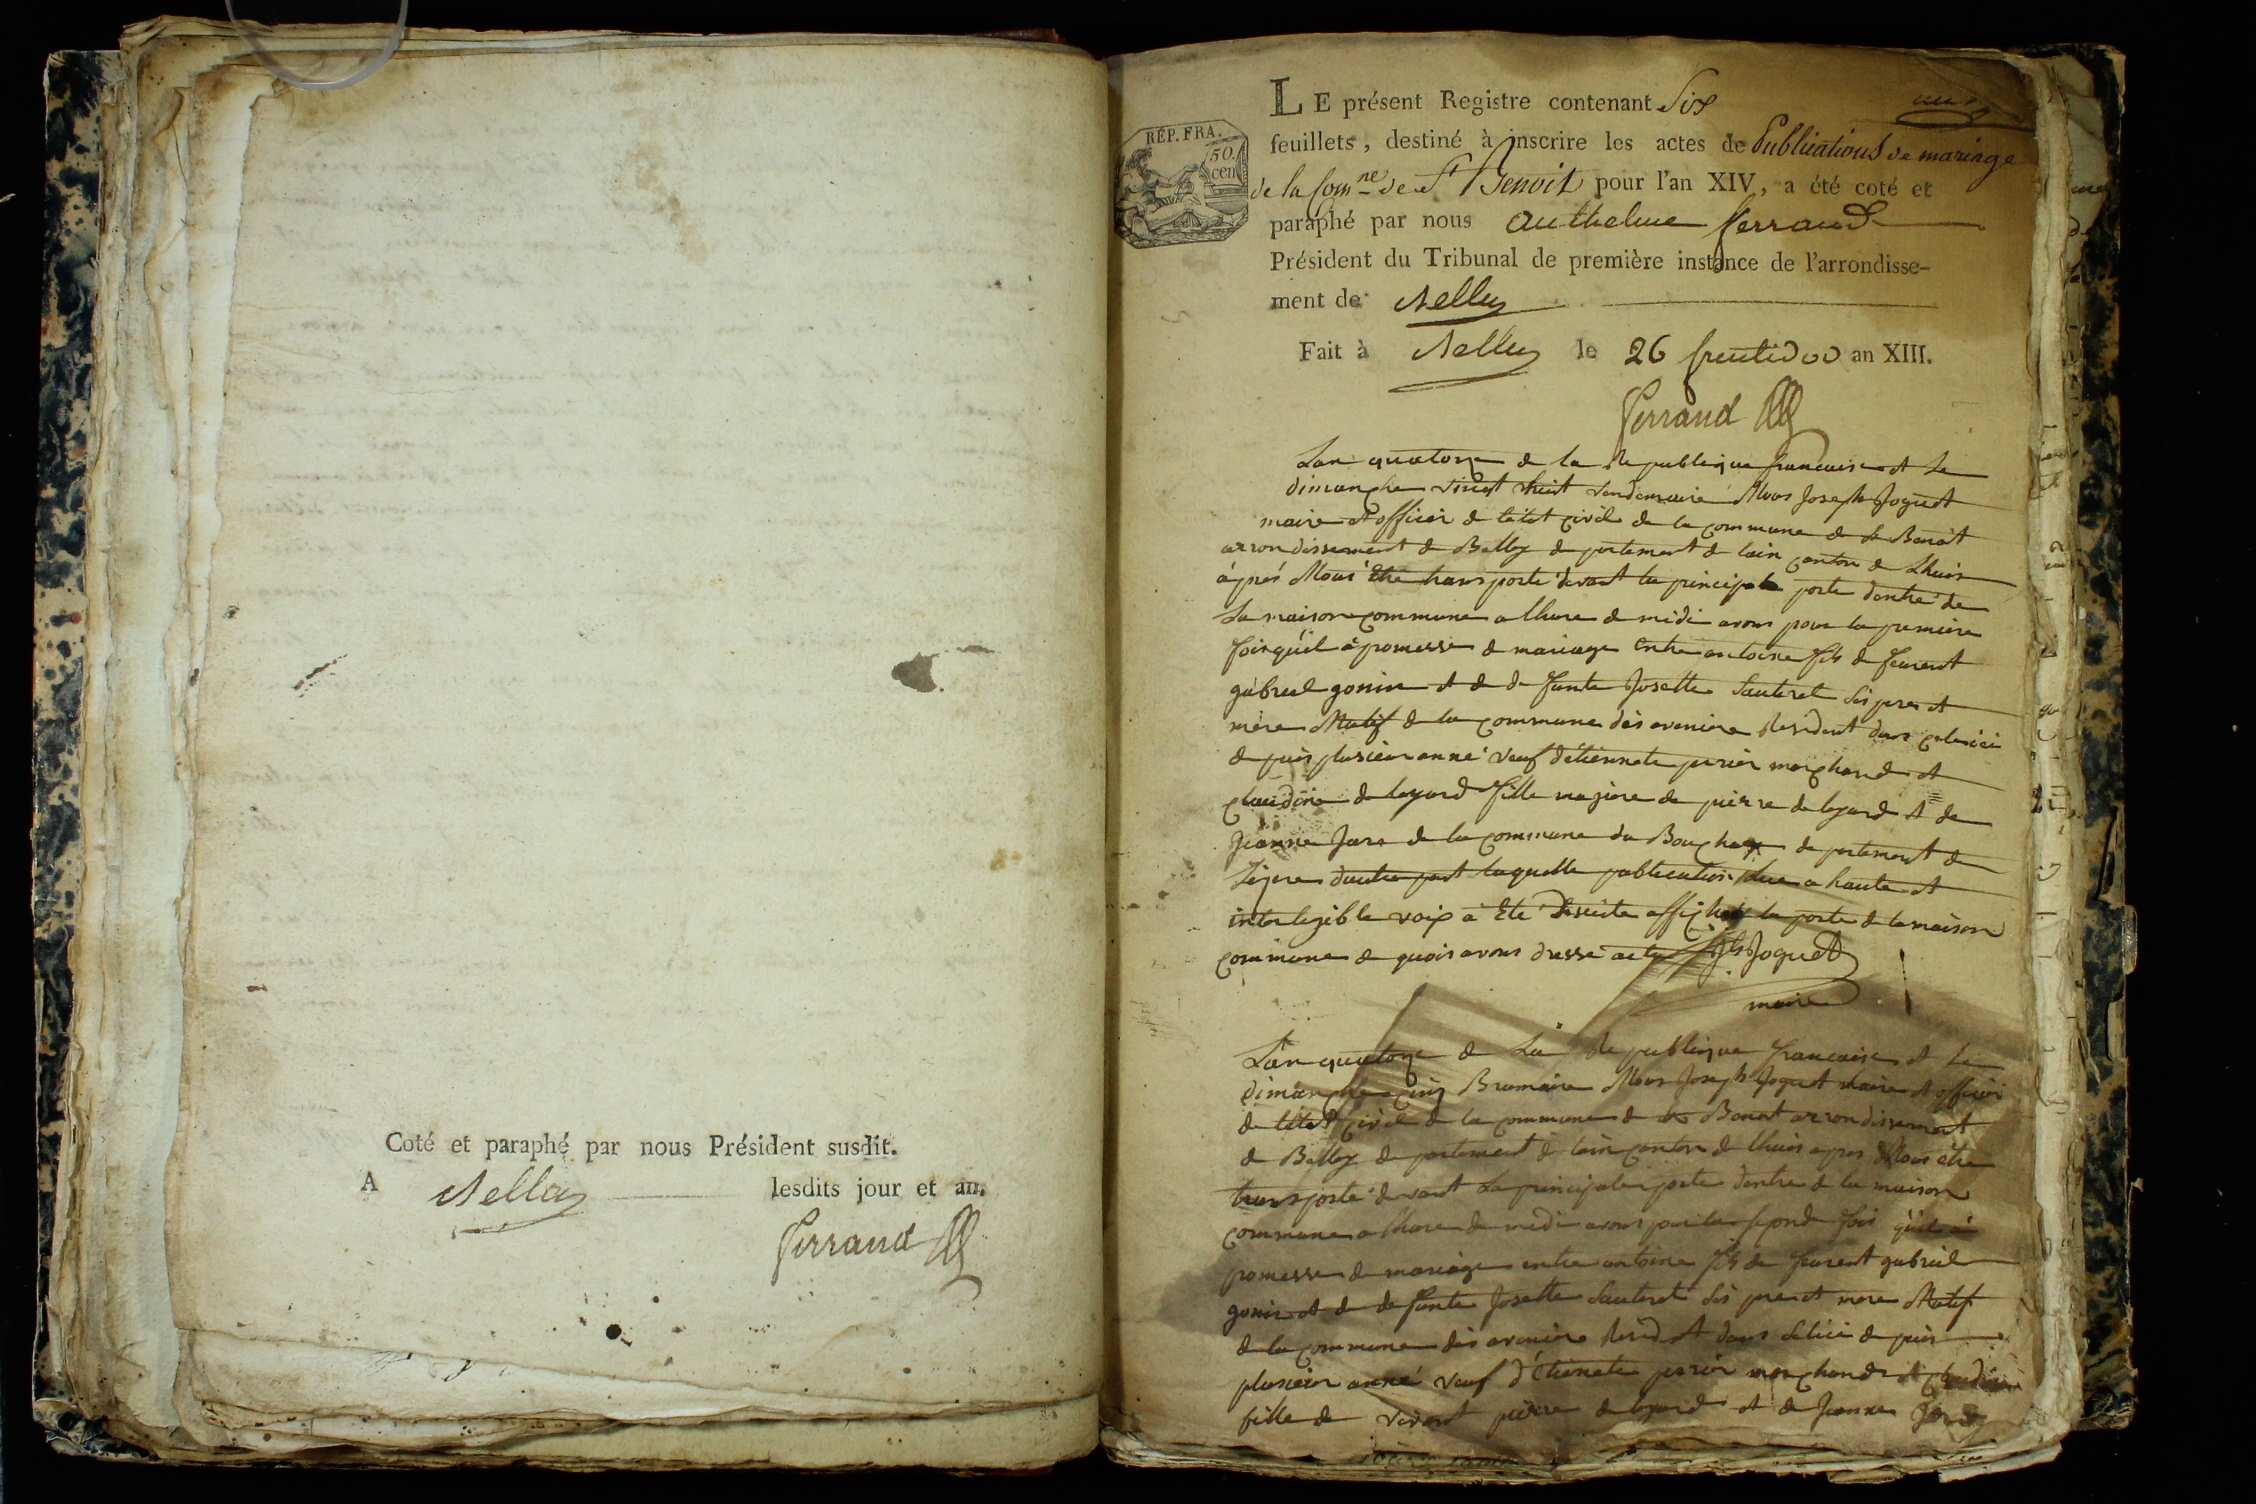 Coté et paraphé par nous Président susdit.
A Belley lesdits jour et an.
Ferrand
RÉP. FRA.
50.
cen
LE présent Registre contenant Six
feuillets, destiné à inscrire les actes de Publications de mariage
de la Comne de St Benoit pour l'an XIV, a été coté et
paraphé par nous Anthelme Ferrand
Président du Tribunal de première instance de l'arrondisse-
ment de Belley
Fait à Belley le 26 fructidor an XIII.
Ferrand
Lan quatorze de la Republique francaise et le
dimanche vingt huit vendemaire Nous Joseph Joguet
maire et officier de letat civil de la commune de St Benoit
arrondissement de Belley departement de lain canton de Lhuis
après Nous Etre transporté devant la principale porte dentré de
La maison commune a lhure de midi avons pour la premiere
fois qu'il à promesse de mariage Entre antoine fils de
gabriel gonin et de defunte Josette Sauteret ses pere et
mère Natif de la commune dès avenière Resident dans celuici
depuis plusieur anné veuf d'étiennete perier marchand et
claudine delegard fille majeure de pierre delegard et de
Jeanne de la commune du Bouchage departement de
Lisere dautre part laquelle publication lue a haute et
intelegible voix à Eté Desuite affiché la porte de la maison
commune de quoi avons dressé acte Jh Joguet
maire
Lan quatorze de La Republique francaise et le
dimanche cinq Brumaire Nous Joseph Joguet maire et officier
de létat civil de la commune de St Benoit arrondissement
de Belley departement de lain canton de lhuis apres Nous etre
transporté devant La principale porte dentré de la maison
commune a lhure de midi avons pour la segonde fois qu'il à
promesse de mariage entre antoine fils de gabriel
gonin et de defunte Josette Sauteret ses pere et mere Natif
de la commune dès avenière Resident dans celuici depuis
plusieur anné veuf d'étienete perier marchand et claudine
fille de vivant pierre delegard et de Jeanne